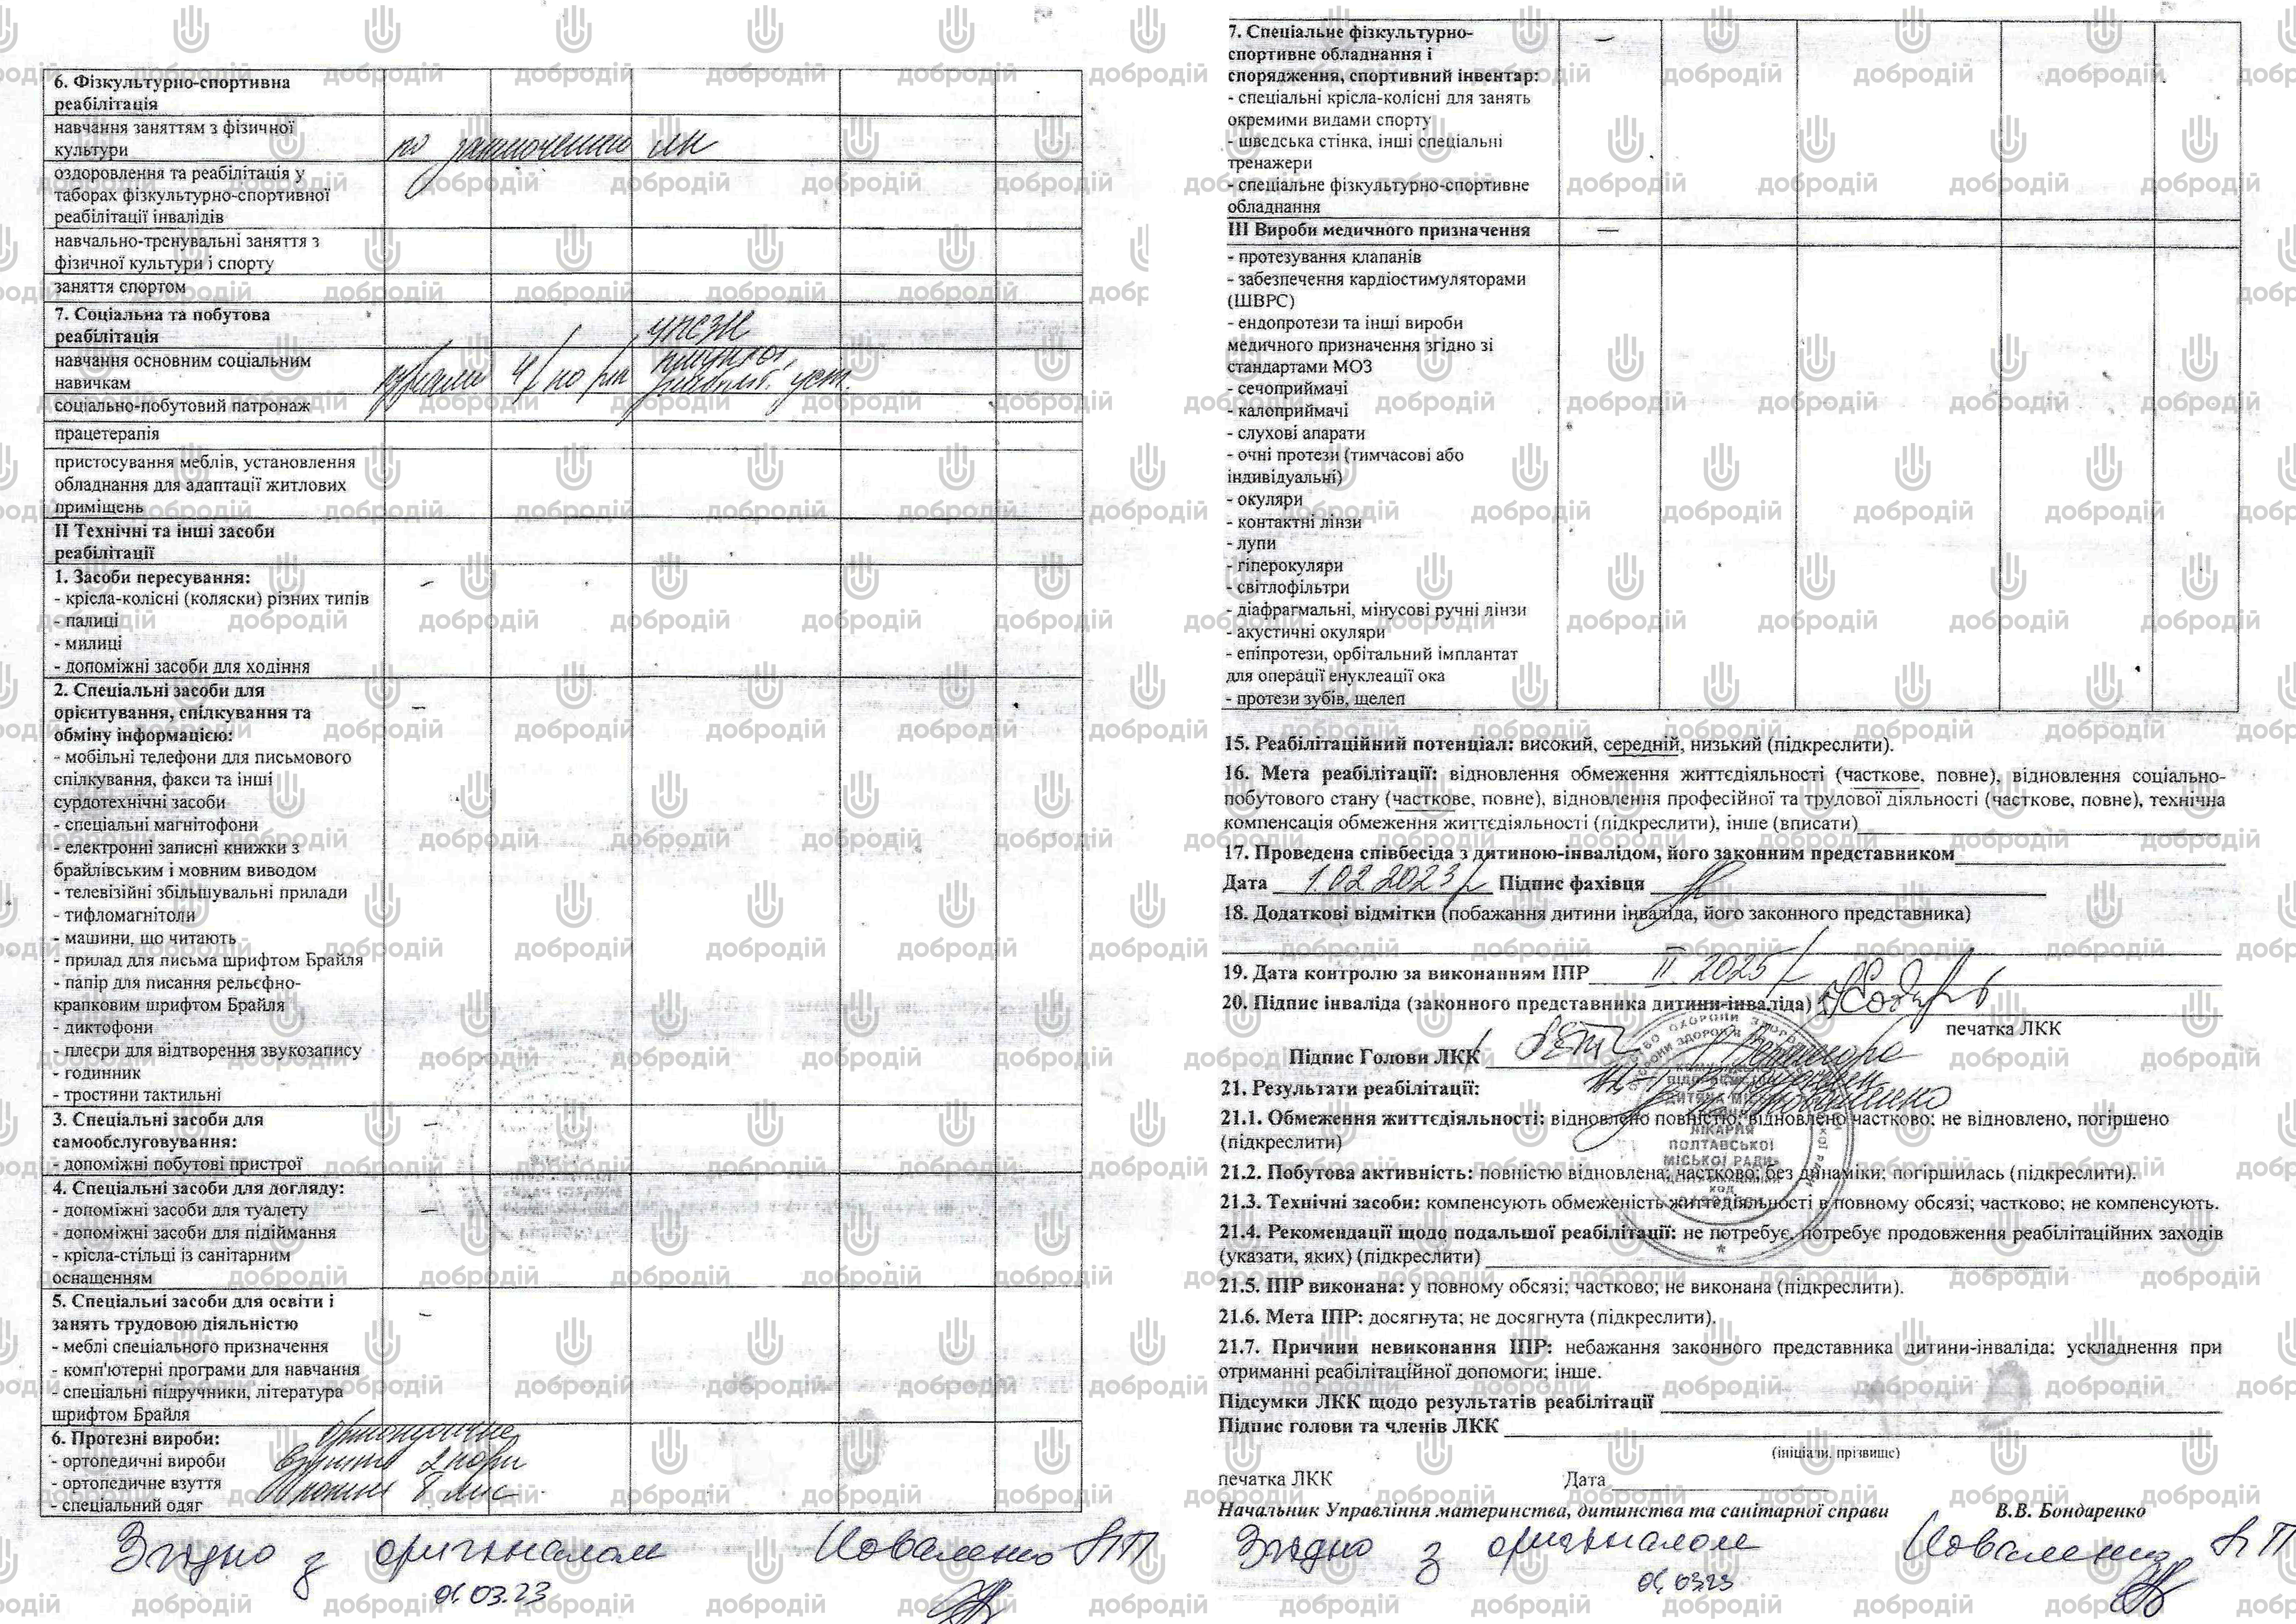 6. Фізкультурно-спортивна
реабілітація
навчання заняттям з фізичної
культури
по заключенню ЛК
оздоровлення та реабілітація у
таборах фізкультурно-спортивної
реабілітації інвалідів
навчально-тренувальні заняття з
фізичної культури і спорту
заняття спортом
7. Соціальна та побутова
реабілітація
УПСЗН
навчання основним соціальним
навичкам
курсами 4 р/ по рік
уст.
соціально-побутовий патронаж
працетерапія
пристосування меблів, установлення
обладнання для адаптації житлових
приміщень
ІІ Технічні та інші засоби
реабілітації
1. Засоби пересування: –
- крісла-колісні (коляски) різних типів
- палиці
- милиці
- допоміжні засоби для ходіння
2. Спеціальні засоби для
орієнтування, спілкування та –
обміну інформацією:
- мобільні телефони для письмового
спілкування, факси та інші
сурдотехнічні засоби
- спеціальні магнітофони
- електронні записні книжки з
брайлівським і мовним виводом
- телевізійні збільшувальні прилади
- тифломагнітоли
- машини, що читають
- прилад для письма шрифтом Брайля
- папір для писання рельєфно-
крапковим шрифтом Брайля
- диктофони
- плеєри для відтворення звукозапису
- годинник
- тростини тактильні
3. Спеціальні засоби для –
самообслуговування:
- допоміжні побутові пристрої
4. Спеціальні засоби для догляду:
- допоміжні засоби для туалету –
- допоміжні засоби для підіймання
- крісла-стільці із санітарним
оснащенням
5. Спеціальні засоби для освіти і –
занять трудовою діяльністю
- меблі спеціального призначення
- комп'ютерні програми для навчання
- спеціальні підручники, література
шрифтом Брайля
6. Протезні вироби: ортопедичне
- ортопедичні вироби взуття 2 пари
- ортопедичне взуття
- спеціальний одяг
Згідно з оригіналом Коваленко
01.03.23
7. Спеціальне фізкультурно- –
спортивне обладнання і
спорядження, спортивний інвентар:
- спеціальні крісла-колісні для занять
окремими видами спорту
- шведська стінка, інші спеціальні
тренажери
- спеціальне фізкультурно-спортивне
обладнання
ІІІ Вироби медичного призначення –
- протезування клапанів
- забезпечення кардіостимуляторами
(ШВРС)
- ендопротези та інші вироби
медичного призначення згідно зі
стандартами МОЗ
- сечоприймачі
- калоприймачі
- слухові апарати
- очні протези (тимчасові або
індивідуальні)
- окуляри
- контактні лінзи
- лупи
- гіперокуляри
- світлофільтри
- діафрагмальні, мінусові ручні лінзи
- акустичні окуляри
- епіпротези, орбітальний імплантат
для операції енуклеації ока
- протези зубів, щелеп
15. Реабілітаційний потенціал: високий, середній, низький (підкреслити).
16. Мета реабілітації: відновлення обмеження життєдіяльності (часткове, повне), відновлення соціально-
побутового стану (часткове, повне), відновлення професійної та трудової діяльності (часткове, повне), технічна
компенсація обмеження життєдіяльності (підкреслити), інше (вписати)
17. Проведена співбесіда з дитиною-інвалідом, його законним представником
Дата 1.02.2023 р Підпис фахівця
18. Додаткові відмітки (побажання дитини інваліда, його законного представника)
19. Дата контролю за виконанням ІПР ІІ. 2025 р
20. Підпис інваліда (законного представника дитини-інваліда)
печатка ЛКК
Підпис Голови ЛКК
21. Результати реабілітації:
21.1. Обмеження життєдіяльності: відновлено повністю; відновлено частково; не відновлено, погіршено
(підкреслити)
ЛІКАРНЯ
ПОЛТАВСЬКОЇ
МІСЬКОЇ РАДИ
21.2. Побутова активність: повністю відновлена; частково; без динаміки; погіршилась (підкреслити).
21.3. Технічні засоби: компенсують обмеженість життєдіяльності в повному обсязі; частково; не компенсують.
21.4. Рекомендації щодо подальшої реабілітації: не потребує, потребує продовження реабілітаційних заходів
(указати, яких) (підкреслити)
21.5. ІПР виконана: у повному обсязі; частково; не виконана (підкреслити).
21.6. Мета ІПР: досягнута; не досягнута (підкреслити).
21.7. Причини невиконання ІПР: небажання законного представника дитини-інваліда; ускладнення при
отриманні реабілітаційної допомоги; інше.
Підсумки ЛКК щодо результатів реабілітації
Підпис голови та членів ЛКК
(ініціали, прізвище)
печатка ЛКК Дата
Начальник Управління материнства, дитинства та санітарної справи В.В. Бондаренко
Згідно з оригіналом Коваленко
01.03.23
добродій